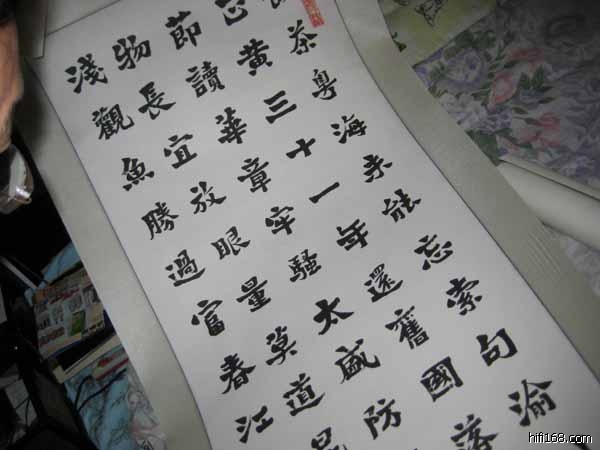 茶粵海未能忘索句渝
正黃三十一年還舊國落
節讀華章牢騷太盛防
物長宜放眼量莫道昆
淺觀魚勝過富春江
hifi168.com